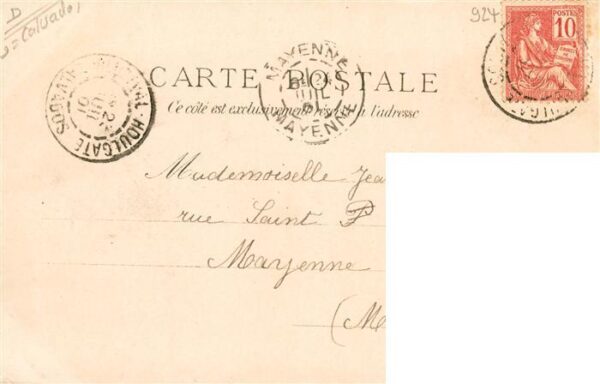 D
(Calvados)
924
POSTES
10
MAYENNE
JUIL
MAYENNE
HOULGATE
JUIL
01
CARTE POSTALE
Ce côté est exclusivement réservé à l'adresse
Mademoiselle Jea
rue Saint P
Mayenne
(M